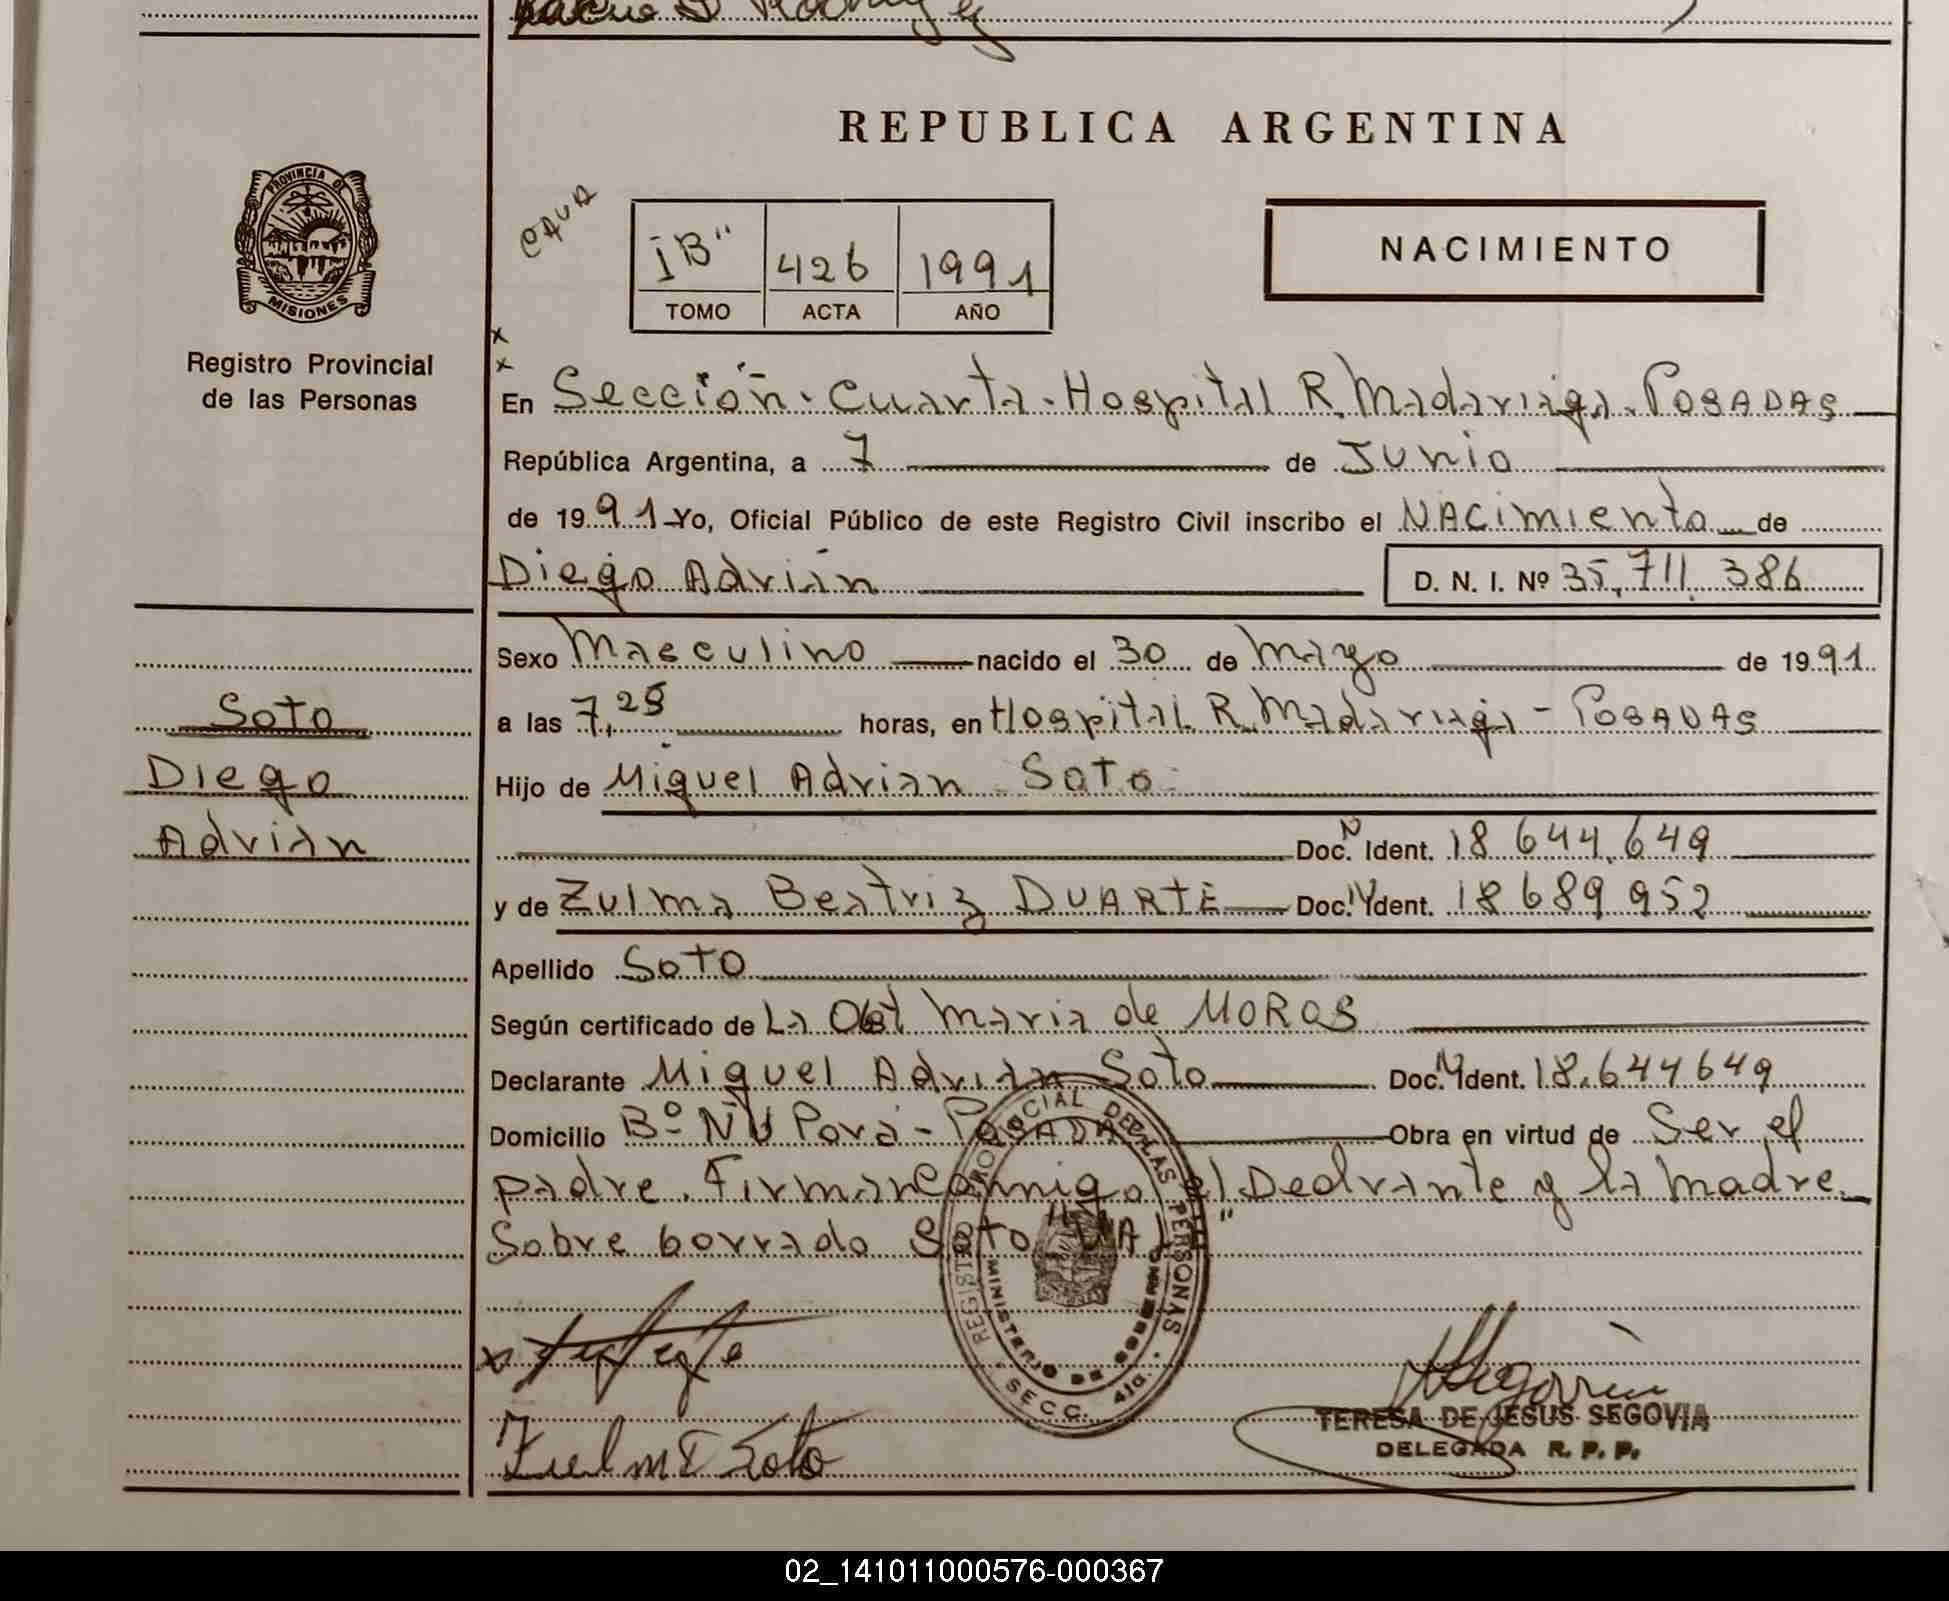 Rodriguez
REPUBLICA ARGENTINA
PROVINCIA DE
MISIONES
Registro Provincial
de las Personas
IB"
426
1991
TOMO
ACTA
AÑO
NACIMIENTO
x
x
En Sección. Cuarta. Hospital R. Madariaga. POSADAS
República Argentina, a 7 de Junio
de 1991 Yo, Oficial Público de este Registro Civil inscribo el NACimiento de
Diego Adrián D. N. I. Nº 35.711.386
Sexo Masculino nacido el 30 de mayo de 1991.
Soto
a las 7,25 horas, en Hospital R. Madariaga - POSADAS
Diego
Hijo de Miguel Adrian Soto
Adrián
Doc. Ident. 18.644.649
y de Zulma Beatriz DUARTE Doc. Ident. 18689952
Apellido SOTO
Según certificado de La Obst Maria de MOROS
Declarante Miguel Adrian Soto Doc. Ident. 18.644649
Domicilio Bº Ñu Porá - POSADAS Obra en virtud de Ser el
padre. Firman Conmigo el Declrante y la madre
Sobre borrado Soto "VALE"
REGISTRO PROVINCIAL DE LAS PERSONAS
MINISTERIO DE GOBIERNO
SECC. 4ta.
Zulma Soto
TERESA DE JESUS SEGOVIA
DELEGADA R. P. P.
02_141011000576-000367